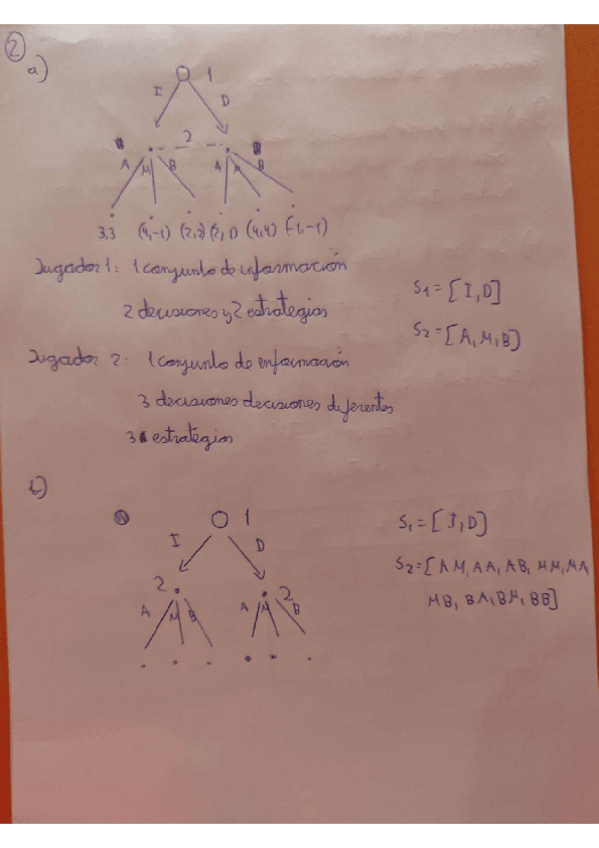 2
a)
1
I D
2
A M B A M B
3,3 (4,-1) (2,2) (4,4) (-1,-1)
Jugador 1: 1 conjunto de información
2 decisiones y 2 estrategias
S1=[I,D]
S2=[A,M,B]
Jugador 2: 1 conjunto de información
3 decisiones decisiones diferentes
3 estrategias
b)
1
I D
2 2
A M B A M B
S1=[I,D]
S2=[AM, AA, AB, MM, MA,
MB, BA, BM, BB]